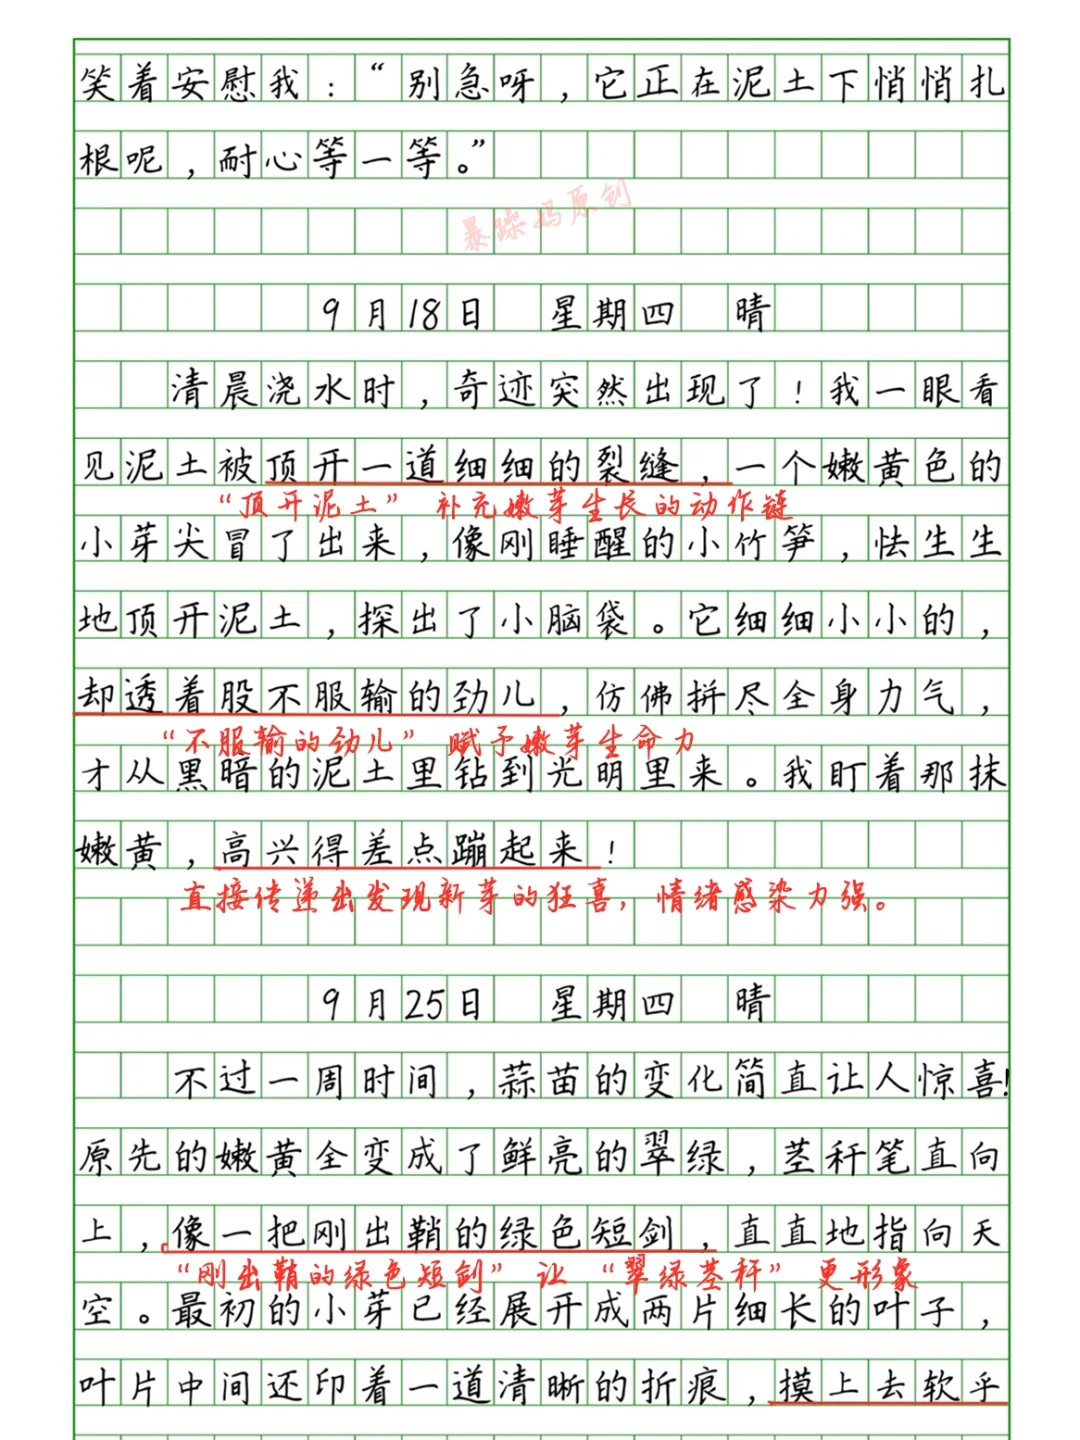 笑着安慰我：“别急呀，它正在泥土下悄悄扎
根呢，耐心等一等。”
暴躁妈原创
9月18日 星期四 晴
清晨浇水时，奇迹突然出现了！我一眼看
见泥土被顶开一道细细的裂缝，一个嫩黄色的
“顶开泥土” 补充嫩芽生长的动作链
小芽尖冒了出来，像刚睡醒的小竹笋，怯生生
地顶开泥土，探出了小脑袋。它细细小小的，
却透着股不服输的劲儿，仿佛拼尽全身力气，
“不服输的劲儿” 赋予嫩芽生命力
才从黑暗的泥土里钻到光明里来。我盯着那抹
嫩黄，高兴得差点蹦起来！
直接传递出发现新芽的狂喜，情绪感染力强。
9月25日 星期四 晴
不过一周时间，蒜苗的变化简直让人惊喜！
原先的嫩黄全变成了鲜亮的翠绿，茎秆笔直向
上，像一把刚出鞘的绿色短剑，直直地指向天
“刚出鞘的绿色短剑” 让 “翠绿茎秆” 更形象
空。最初的小芽已经展开成两片细长的叶子，
叶片中间还印着一道清晰的折痕，摸上去软乎